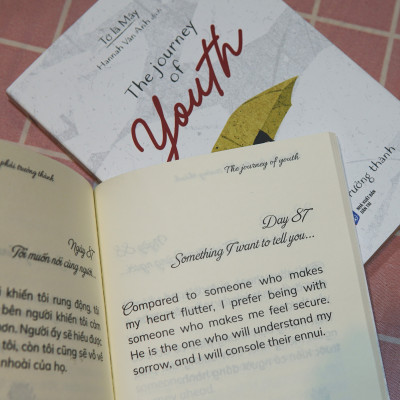 Tớ là Mây
Hannah Vân Anh dịch
The journey
of
Youth
trưởng thành
NHÀ XUẤT BẢN
DÂN TRÍ
trưởng thành
Ngày 87
Tôi muốn nói cùng người...
khiến tôi rung động, tôi
bên người khiến tôi cảm
hơn. Người ấy sẽ hiểu được
tôi, còn tôi cũng sẽ vỗ về
nhoài của họ.
The journey of youth
Day 87
Something I want to tell you...
Compared to someone who makes
my heart flutter, I prefer being with
someone who makes me feel secure.
He is the one who will understand my
sorrow, and I will console their ennui.